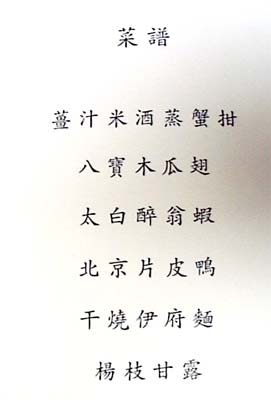 菜譜
薑汁米酒蒸蟹拑
八寶木瓜翅
太白醉翁蝦
北京片皮鴨
干燒伊府麵
楊枝甘露